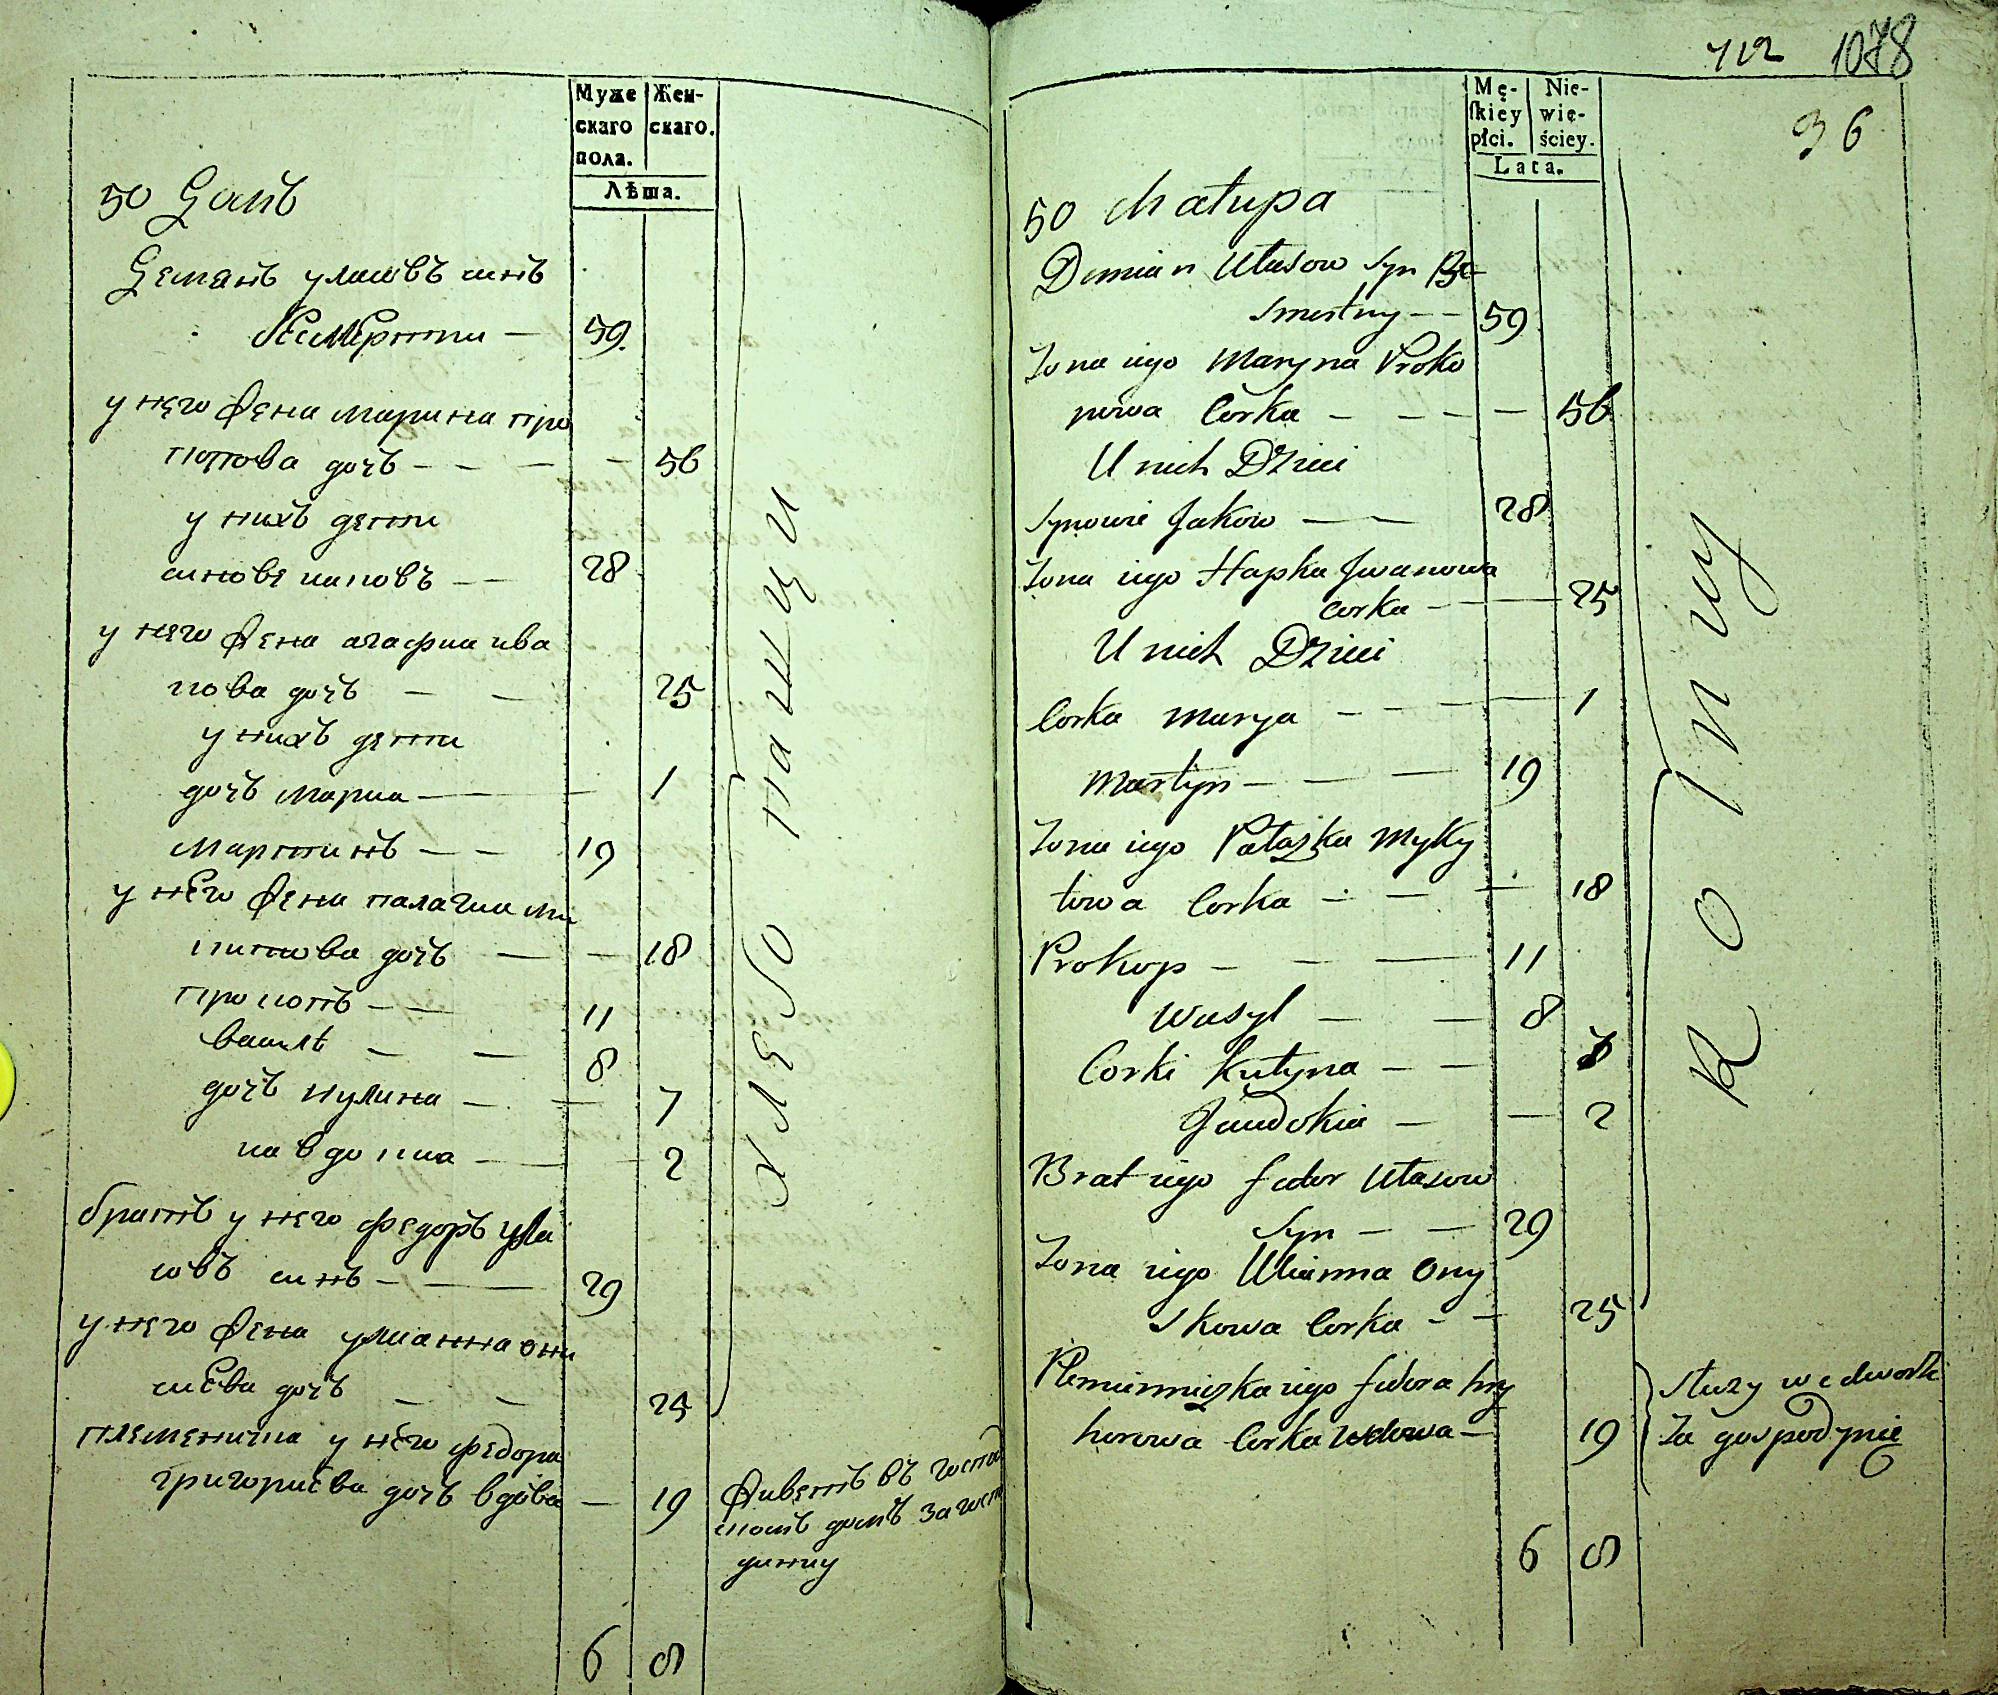 Муже
скаго
пола.
Жен-
скаго.
Лѣта.
50 Домъ
Демянъ уласовъ синъ
бесмертни — 59
у него жена марина про
попова дочъ — 56
у нихъ дети
синове яковъ — 28
у него жена агафия ива
нова дочъ — 25
у нихъ дети
дочъ мария — 1
мартинъ — 19
у него жена палагия ми
китова дочъ — 18
прокопъ — 11
василь — 8
дочъ кулина — 7
явдокиа — 2
братъ у него федоръ ула
совъ синъ — 29
у него жена улианна они
сиева дочъ — 25
племеница у него федора
григориева дочъ вдова — 19
живетъ въ господ
скомъ домѣ за госпо
динку
хлебо пашци
6 8
712 1078
36
Mę-
skiey
płci.
Nie-
wie-
ściey.
Lata.
50 Chałupa
Demian Ułasow Syn Be
Smertny — 59
Zona iego Maryna Proko
powa Corka — 56
U nich Dzieci
Synowie Jakow — 28
Zona iego Hapka Jwanowa
corka — 25
U nich Dzieci
Corka Marya — 1
Martyn — 19
Zona iego Pałazka Myky
towa Corka — 18
Prokop — 11
Wasyl — 8
Corki Kulyna — 7
Jawdokia — 2
Brat iego Fedor Ułasow
Syn — 29
Zona iego Ulianna Ony
Skowa Corka — 25
Plemienniczka iego Fedora hry
horowa Corka wdowa — 19
służy we dworze
Za gospodynię
Rolniy
6 8